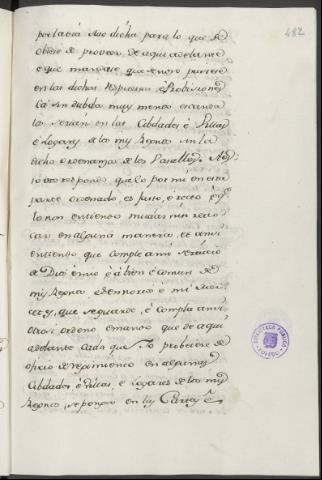 482
por la via suso dicha para lo que se
obiere de proveer de aqui adelante
e que mandase que se non pusiese
en las dichas espresiones é Probisiones
Ca sin dubda muy menos escanda
los serian en las Cibdades é Villas
é Logares de los mis Regnos sin la
dicha ordenanza de los Vasallos. A es
to vos respondo, que lo por mi en esta
parte ordenado, es justo, é recto é q.e
lo non entiendo mudar nin revo
car en alguna manera, et consi
entiendo que cumple ami servicio
de Dios é mio é al bien é comun de
mis Regnos é Sennorios é mi mer
cet es, que se guarde, é cumpla ansi
otrosi ordeno e mando que de aqui
adelante cada que Yo proveiere de
oficio de regimiento en algunas
Cibdades, é Villas, é Logares de los mis
Regnos, se pongan en las Cartas é
BIBLIOTECA PUBLICA
TOLEDO